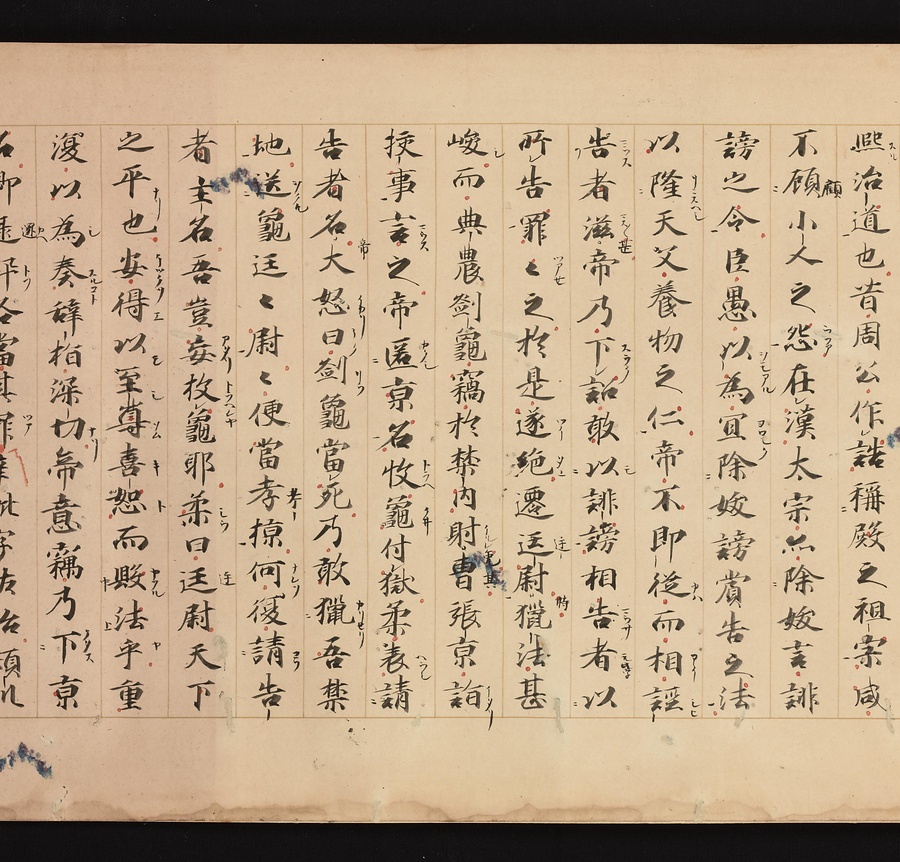 熙治道也昔周公作誥稱殷之祖宗咸
不顧小人之怨在漢太宗亦除妖言誹
謗之令臣愚以為宜除妖謗賞告之法
以隆天父養物之仁帝不即從而相誣
告者滋帝乃下詔敢以誹謗相告者以
所告罪々之於是遂絶遷廷尉獵法甚
峻而典農劉龜竊於禁内射曹張京詣
挍事言之帝匿京名收龜付獄柔表請
告者名大怒曰劉龜當死乃敢獵吾禁
地送龜廷々尉々便當考掠何復請告
者主名吾豈妄收龜耶柔曰廷尉天下
之平也安得以至尊喜怒而毀法乎重
復以為奏辞栢深切帝意竊乃下京
名即